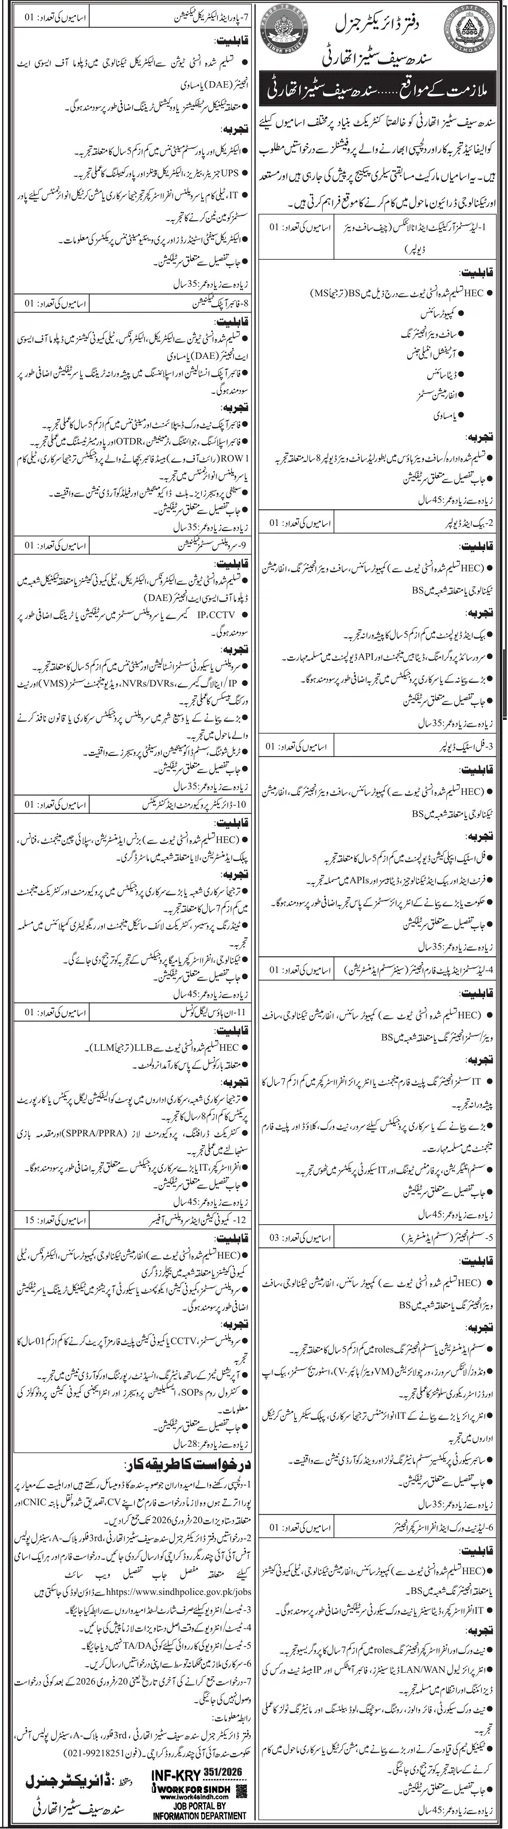 دفتر ڈائریکٹر جنرل
سندھ سیف سٹیز اتھارٹی
ملازمت کے مواقع.....سندھ سیف سٹیز اتھارٹی
سندھ سیف سٹیز اتھارٹی کو خالصتاً کنٹریکٹ بنیاد پر مختلف اسامیوں کیلئے
کوالیفائیڈ تجربہ کار اور دلچسپی ابھارنے والے پروفیشنلز سے درخواستیں مطلوب
ہیں۔ یہ اسامیاں مارکیٹ مسابقتی سیلری پیکیج پر پیش کی جا رہی ہیں اور مستعد
اور ٹیکنالوجی ڈرائیون ماحول میں کام کرنے کا موقع فراہم کرتی ہیں۔
1- لیڈ سسٹمز آرکیٹیکٹ اینڈ انالٹکس (چیف سافٹ ویئر ڈیولپر) اسامیوں کی تعداد: 01
قابلیت:
HEC تسلیم شدہ انسٹی ٹیوٹ سے درج ذیل میں BS (ترجیحاً MS)
کمپیوٹر سائنس
سافٹ ویئر انجینئرنگ
آرٹیفشل انٹیلی جنس
ڈیٹا سائنس
انفارمیشن سسٹمز
یا مساوی
تجربہ:
تسلیم شدہ ادارہ/سافٹ ویئر ہاؤس میں بطور لیڈ سافٹ ویئر ڈیولپر 8 سالہ متعلقہ تجربہ
جاب تفصیل سے متعلق سرٹیفکیشن
زیادہ سے زیادہ عمر: 45 سال
2- بیک اینڈ ڈیولپر اسامیوں کی تعداد: 01
قابلیت:
(HEC تسلیم شدہ انسٹی ٹیوٹ سے) کمپیوٹر سائنس، سافٹ ویئر انجینئرنگ، انفارمیشن
ٹیکنالوجی یا متعلقہ شعبہ میں BS
تجربہ:
بیک اینڈ ڈیولپمنٹ میں کم از کم 5 سال کا پیشہ ورانہ تجربہ۔
سرور سائڈ پروگرامنگ، ڈیٹا بیس مینجمنٹ اور API ڈیولپمنٹ میں مسلمہ مہارت۔
بڑے پیمانہ کے یا سرکاری پروجیکٹس میں تجربہ اضافی طور پر سودمند ہوگا۔
جاب تفصیل سے متعلق سرٹیفکیشن
زیادہ سے زیادہ عمر: 35 سال
3- فل اسٹیک ڈیولپر اسامیوں کی تعداد: 01
قابلیت:
(HEC تسلیم شدہ انسٹی ٹیوٹ سے) کمپیوٹر سائنس، سافٹ ویئر انجینئرنگ، انفارمیشن
ٹیکنالوجی یا متعلقہ شعبہ میں BS
تجربہ:
فل اسٹیک ایپلی کیشن ڈیولپمنٹ میں کم از کم 5 سال کا متعلقہ تجربہ
فرنٹ اینڈ اور بیک اینڈ ٹیکنالوجیز، ڈیٹا بیسز اور APIs میں مسلمہ تجربہ۔
حکومت یا بڑے پیمانے کے انٹرپرائز سسٹمز کے پاس تجربہ اضافی طور پر سودمند ہوگا۔
جاب تفصیل سے متعلق سرٹیفکیشن
زیادہ سے زیادہ عمر: 35 سال
4- لیڈ سسٹمز اینڈ پلیٹ فارم انجینئر (سینئر سسٹم ایڈمنسٹریشن) اسامیوں کی تعداد: 01
قابلیت:
(HEC تسلیم شدہ انسٹی ٹیوٹ سے) کمپیوٹر سائنس، انفارمیشن ٹیکنالوجی، سافٹ
ویئر/سسٹمز انجینئرنگ یا متعلقہ شعبہ میں BS
تجربہ:
IT سسٹمز انجینئرنگ پلیٹ فارم مینجمنٹ یا انٹرپرائز انفرااسٹرکچر میں کم از کم 7 سال کا
پیشہ ورانہ تجربہ۔
بڑے پیمانے کے یا سرکاری پروجیکٹس کیلئے سرور، نیٹ ورک، کلاؤڈ اور پلیٹ فارم
مینجمنٹ میں مسلمہ مہارت۔
سسٹم انٹیگریشن، پرفارمنس ٹیوننگ اور IT سیکورٹی پریکٹسز میں ٹھوس تجربہ۔
جاب تفصیل سے متعلق سرٹیفکیشن
زیادہ سے زیادہ عمر: 45 سال
5- سسٹم انجینئر (سسٹم ایڈمنسٹریٹر) اسامیوں کی تعداد: 03
قابلیت:
(HEC تسلیم شدہ انسٹی ٹیوٹ سے) کمپیوٹر سائنس، انفارمیشن ٹیکنالوجی، سافٹ
ویئر انجینئرنگ یا متعلقہ شعبہ میں BS
تجربہ:
سسٹم ایڈمنسٹریشن یا سسٹم انجینئرنگ roles میں کم از کم 5 سال کا متعلقہ تجربہ۔
ونڈوز/لائنکس سرورز، ورچولائزیشن (VM ویئر/ہائپر-V)، اسٹوریج سسٹمز، بیک اپ
اور ڈزاسٹر ریکوری سلوشنز کا عملی تجربہ۔
انٹرپرائز یا بڑے پیمانے کے IT انوائرمنٹس ترجیحاً سرکاری، پبلک سیکٹر یا مشن کرٹیکل
اداروں میں تجربہ
سائبر سیکورٹی پریکٹسز سسٹم مانیٹرنگ ٹولز اور وینڈر کوآرڈی نیشن سے واقفیت۔
جاب تفصیل سے متعلق سرٹیفکیشن
زیادہ سے زیادہ عمر: 35 سال
6- لیڈ نیٹ ورک اینڈ انفرااسٹرکچر انجینئر اسامیوں کی تعداد: 01
قابلیت:
HEC تسلیم شدہ انسٹی ٹیوٹ سے کمپیوٹر سائنس، انفارمیشن ٹیکنالوجی، ٹیلی کمیونی کیشنز
یا متعلقہ انجینئرنگ شعبہ میں BS۔
IT انفرااسٹرکچر، ڈیٹا سینٹر یا نیٹ ورک سیکورٹی میں سرٹیفکیشن اضافی طور پر سودمند ہوگی۔
تجربہ:
نیٹ ورک اور انفرااسٹرکچر انجینئرنگ roles میں کم از کم 7 سال کا پروگریسیو تجربہ۔
انٹرپرائز لیول LAN/WAN ڈیٹا سینٹرز، فائبر آپٹکس اور IP بیسڈ نیٹ ورکس کی
ڈیزائننگ اور انتظام میں مسلمہ تجربہ۔
نیٹ ورک سیکورٹی، فائر والز، روٹنگ، سوئچنگ، لوڈ بیلنسنگ اور مانیٹرنگ ٹولز کا عملی
تجربہ۔
ٹیکنیکل ٹیم کی قیادت کرنے اور بڑے پیمانے میں، مشن کرٹیکل یا سرکاری ماحول میں کام
کرنے کے سابقہ تجربہ کو ترجیح دی جائیگی۔
جاب تفصیل سے متعلق سرٹیفکیشن
زیادہ سے زیادہ عمر: 45 سال
7- پاور اینڈ الیکٹریکل ٹیکنیشن اسامیوں کی تعداد: 01
قابلیت:
تسلیم شدہ انسٹی ٹیوشن سے الیکٹریکل ٹیکنالوجی میں ڈپلوما آف ایسوسی ایٹ
انجینئر (DAE) یا مساوی
متعلقہ ٹیکنیکل سرٹیفکیشنز یا ووکیشنل ٹریننگ اضافی طور پر سودمند ہوگی۔
تجربہ:
الیکٹریکل اور پاور سسٹم مینٹی ننس میں کم از کم 5 سال کا متعلقہ تجربہ۔
UPS جنریٹرز، بیٹریز، الیکٹریکل پینلز اور پاور کیبلنگ کا عملی تجربہ۔
IT، ٹیلی کام یا سرویلنس انفرااسٹرکچر ترجیحاً سرکاری یا مشن کرٹیکل انوائرمنٹس کیلئے پاور
سسٹمز کو مین ٹین کرنے کا تجربہ۔
الیکٹریکل سیفٹی اسٹینڈرڈز اور پری وینٹیو مینٹی ننس پریکٹسز کی معلومات۔
جاب تفصیل سے متعلق سرٹیفکیشن۔
زیادہ سے زیادہ عمر: 35 سال
8- فائبر آپٹک ٹیکنیشن اسامیوں کی تعداد: 01
قابلیت:
تسلیم شدہ انسٹی ٹیوشن سے الیکٹریکل، الیکٹرونکس، ٹیلی کمیونی کیشنز میں ڈپلوما آف ایسوسی
ایٹ انجینئر (DAE) یا مساوی
فائبر آپٹک انسٹالیشن اور اسپلائسنگ میں پیشہ ورانہ ٹریننگ یا سرٹیفکیشن اضافی طور پر
سودمند ہوگی۔
تجربہ:
فائبر آپٹک نیٹ ورک ڈیپلائمنٹ اور مینٹی ننس میں کم از کم 5 سال کا عملی تجربہ۔
فائبر اسپلائسنگ، جوائنٹنگ، ٹرمینیشن، OTDR اور پاور میٹر ٹیسٹنگ میں عملی تجربہ۔
ROW (رائٹ آف وے) ہینڈ فائبر بچھانے والے پروجیکٹس ترجیحاً سرکاری، ٹیلی کام
یا سرویلنس انوائرمنٹس میں تجربہ۔
سیفٹی پروسیجرز، ایز-بلٹ ڈاکومینٹیشن اور فیلڈ کوآرڈی نیشن سے واقفیت۔
جاب تفصیل سے متعلق سرٹیفکیشن
زیادہ سے زیادہ عمر: 35 سال
9- سرویلنس سسٹمز ٹیکنیشن اسامیوں کی تعداد: 01
قابلیت:
تسلیم شدہ انسٹی ٹیوشن سے الیکٹرونکس، الیکٹریکل، ٹیلی کمیونی کیشنز یا متعلقہ ٹیکنیکل شعبہ میں
ڈپلوما آف ایسوسی ایٹ انجینئر (DAE)
IP، CCTV کیمرے یا سرویلنس سسٹمز میں سرٹیفکیشن یا ٹریننگ اضافی طور پر
سودمند ہوگی۔
تجربہ:
سرویلنس یا سیکورٹی سسٹمز انسٹالیشن اور مینٹی ننس میں کم از کم 5 سال کا متعلقہ تجربہ۔
IP/اینالاگ کیمرے، NVRs/DVRs، ویڈیو مینجمنٹ سسٹمز (VMS) اور نیٹ
ورکنگ بیسکس کا عملی تجربہ۔
بڑے پیمانے کے یا وسیع شہر میں سرویلنس پروجیکٹس سرکاری یا قانون نافذ کرنے
والے ماحول میں تجربہ۔
ٹربل شوٹنگ، سسٹم ڈاکومینٹیشن اور سیفٹی پروسیجرز سے واقفیت۔
جاب تفصیل سے متعلق سرٹیفکیشن
زیادہ سے زیادہ عمر: 35 سال
10- ڈائریکٹر پروکیورمنٹ اینڈ کنٹریکٹس اسامیوں کی تعداد: 01
قابلیت:
(HEC تسلیم شدہ انسٹی ٹیوٹ سے) بزنس ایڈمنسٹریشن، سپلائی چین مینجمنٹ، فنانس،
پبلک ایڈمنسٹریشن، لاء یا متعلقہ شعبہ میں ماسٹر ڈگری۔
تجربہ:
ترجیحاً سرکاری شعبہ یا بڑے سرکاری پروجیکٹس میں پروکیورمنٹ اور کنٹریکٹ مینجمنٹ
میں کم از کم 7 سال کا متعلقہ تجربہ۔
ٹینڈرنگ پروسیسز، کنٹریکٹ لائف سائیکل مینجمنٹ اور ریگولیٹری کمپلائنس میں مسلمہ
تجربہ۔
ٹیکنالوجی، انفرااسٹرکچر یا میگا پروجیکٹس کے تجربہ کو ترجیح دی جائے گی۔
جاب تفصیل سے متعلق سرٹیفکیشن
زیادہ سے زیادہ عمر: 45 سال
11- ان ہاؤس لیگل کونسل اسامیوں کی تعداد: 01
قابلیت:
HEC تسلیم شدہ انسٹی ٹیوٹ سے LLB (ترجیحاً LLM)
متعلقہ بار کونسل کے پاس کارآمد انرولمنٹ۔
تجربہ:
ترجیحاً سرکاری شعبہ، سرکاری اداروں میں پوسٹ کوالیفکیشن لیگل پریکٹس یا کارپوریٹ
پریکٹس کا کم از کم 8 سال کا تجربہ۔
کنٹریکٹ ڈرافٹنگ، پروکیورمنٹ لاز (SPPRA/PPRA) اور مقدمہ بازی
سنبھالنے میں عملی تجربہ۔
انفرااسٹرکچر، IT یا بڑے سرکاری پروجیکٹس سے متعلق تجربہ اضافی طور پر سودمند ہوگا۔
جاب تفصیل سے متعلق سرٹیفکیشن۔
زیادہ سے زیادہ عمر: 45 سال
12- کمیونی کیشن اینڈ سرویلنس آفیسر اسامیوں کی تعداد: 15
قابلیت:
(HEC تسلیم شدہ انسٹی ٹیوٹ سے) انفارمیشن ٹیکنالوجی، کمپیوٹر سائنس، الیکٹرونکس، ٹیلی
کمیونی کیشنز یا متعلقہ شعبہ میں بیچلرز ڈگری
سرویلنس سسٹمز، کمیونی کیشن ایکوپمنٹ یا سیکورٹی آپریشنز میں ٹیکنیکل ٹریننگ یا سرٹیفکیشن
اضافی طور پر سودمند ہوگی۔
تجربہ:
سرویلنس سسٹمز، CCTV یا کمیونی کیشن پلیٹ فارمز آپریٹ کرنے کا کم از کم 01 سال کا
تجربہ
آپریشنل ٹیمز کے ساتھ مانیٹرنگ، انسیڈنٹ رپورٹنگ اور کوآرڈی نیشن میں تجربہ۔
کنٹرول روم SOPs، ایسکلیشن پروسیجرز اور انٹر ایجنسی کمیونی کیشن پروٹوکولز کی
معلومات۔
جاب تفصیل سے متعلق سرٹیفکیشن
زیادہ سے زیادہ عمر: 28 سال
درخواست کا طریقہ کار:
1- دلچسپی رکھنے والے امیدواران جو صوبہ سندھ کا ڈومیسائل رکھتے ہیں اور اہلیت کے معیار پر
پورا اترتے ہوں وہ لازماً درخواست فارم مع اپنے CV، تصدیق شدہ نقل بابتہ CNIC اور
متعلقہ دستاویزات 20/فروری 2026 تک جمع کرا دیں۔
2- درخواستیں دفتر ڈائریکٹر جنرل سندھ سیف سٹیز اتھارٹی، 3rd فلور بلاک-A، سینٹرل پولیس
آفس آئی آئی چندریگر روڈ کراچی کو ارسال کر دی جائیں۔ درخواست فارم اور ہر ایک اسامی
کیلئے متعلقہ مفصل جاب تفصیل ویب سائٹ
https://www.sindhpolice.gov.pk/jobs سے ڈاؤن لوڈ کی جاسکتی ہیں
3- ٹیسٹ/انٹرویو کیلئے صرف شارٹ لسٹڈ امیدواروں سے رابطہ کیا جائیگا۔
4- ٹیسٹ/انٹرویو کے وقت اصل دستاویزات لازماً پیش کی جائیں۔
5- ٹیسٹ/انٹرویو کی کارروائی کیلئے کوئی TA/DA نہیں دیا جائیگا۔
6- سرکاری ملازمین محکمانہ توسط سے اپنی درخواستیں ارسال کریں۔
7- درخواست جمع کرانے کی آخری تاریخ یعنی 20/فروری 2026 کے بعد کوئی درخواست
وصول نہیں کی جائیگی۔
رابطہ معلومات:
دفتر ڈائریکٹر جنرل سندھ سیف سٹیز اتھارٹی، 3rd فلور، بلاک-A، سینٹرل پولیس آفس،
حکومت سندھ آئی آئی چندریگر روڈ کراچی۔ (فون: 99218251-021)
دستخط: ڈائریکٹر جنرل
سندھ سیف سٹیز اتھارٹی
INF-KRY 351/2026
I WORK FOR SINDH
www.iwork4sindh.com
JOB PORTAL BY
INFORMATION DEPARTMENT